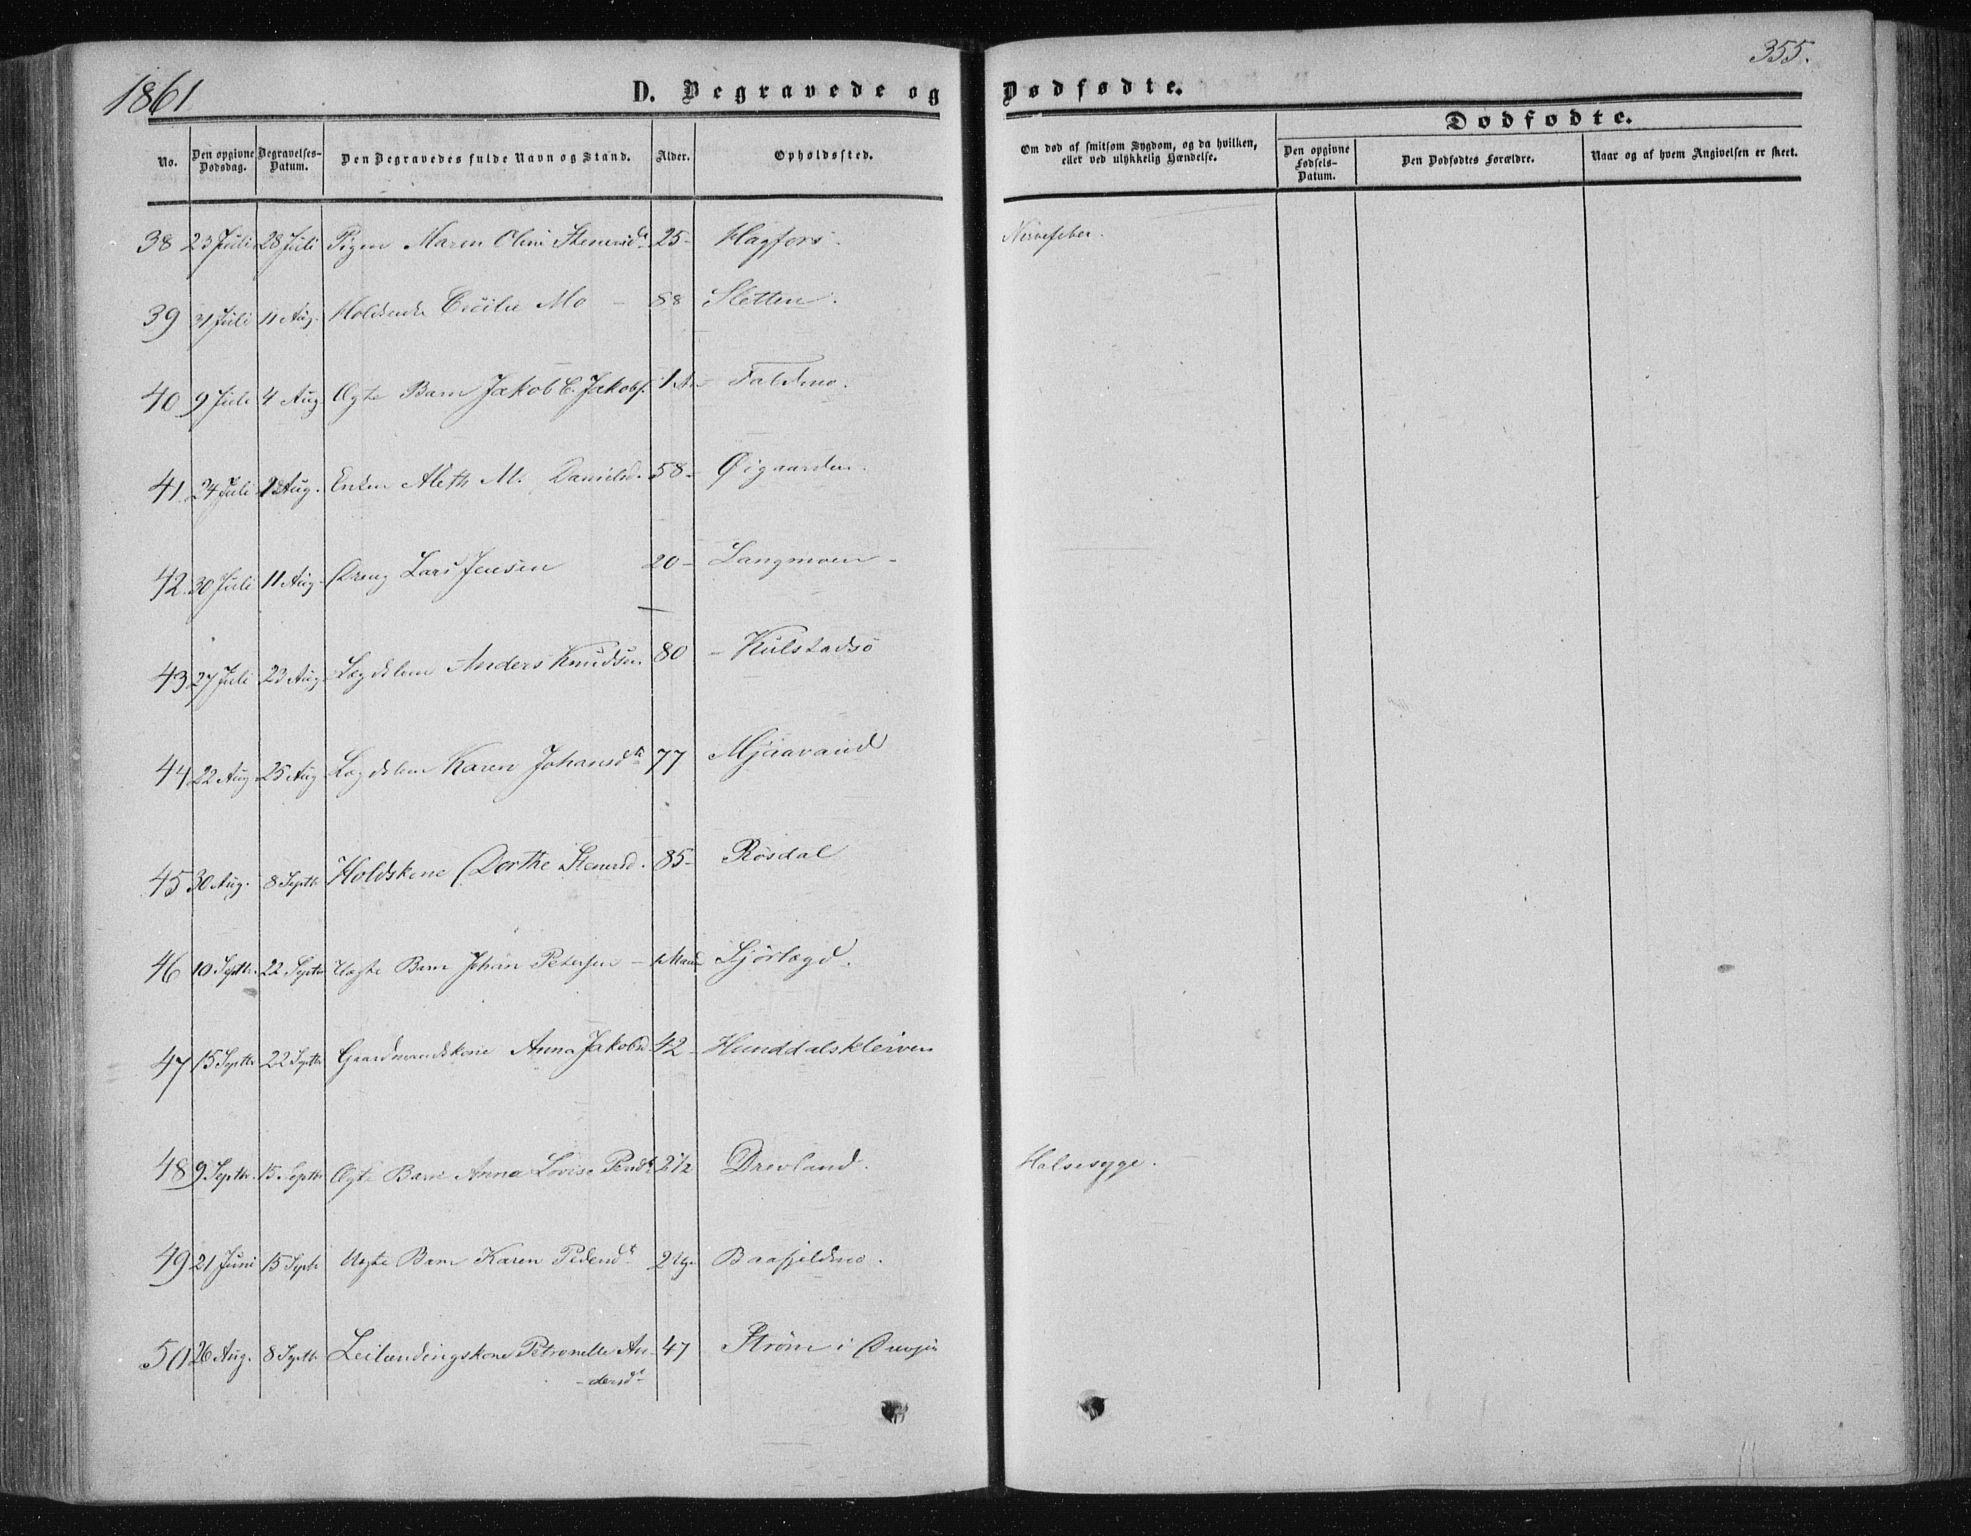 1861
355.
D. Begravede og Dødfødte.
No.
Den opgivne Dødsdag.
Begravelses-Datum.
Den Begravedes fulde Navn og Stand.
Alder.
Opholdssted.
Om død af smitsom Sygdom, og da hvilken, eller ved ulykkelig Hændelse.
Dødfødte.
Den opgivne Fødsels-Datum.
Den Dødfødtes Forældre.
Naar og af hvem Angivelsen er skeet.
38 23 Juli 28 Juli Pigen Maren Oline 25- Hagfors. Nervefeber.
39 31 Juli 11 Aug. Cecilie Mo - 88 Sletten.
40 9 Juli 4 Aug Ægte Barn Jakob C. Jakobs. 1
41 24 Juli Aug. Enken Aleth M. Danielsd. 58- Øigaarden.
42. 30 Juli 11 Aug- Dreng Lars Jensen 20- Langmoen-
43 27 Juli 23 Aug Lægdslem Anders Knudsen 80 - Kulstadsø
44 22 Aug 25 Aug Lægdslem Karen Johansdt 77 Mjaavand
45 30 Aug. 8 Septb Holdskone Dorthe Stenersd. 85- Rosdal
46 10 Septb. 22 Septb Uægte Barn Johan Petersen - Maaned
47 15 Septb 22 Septb Gaardmandskone Anna Jakobsd 42- Hunddalskleiven
48 9 Septbr. 15 Septb Ægte Barn Anna Lovise 2½ Drevland. Halsesyge.
49 21 Juni 15 Septb Uægte Barn Karen Pedersdt 2 Ug. Baafjeldmo.
50 26 Aug. 8 Septb. Leilændingskone Petronelle An- 47 Strøm i
-dersdt